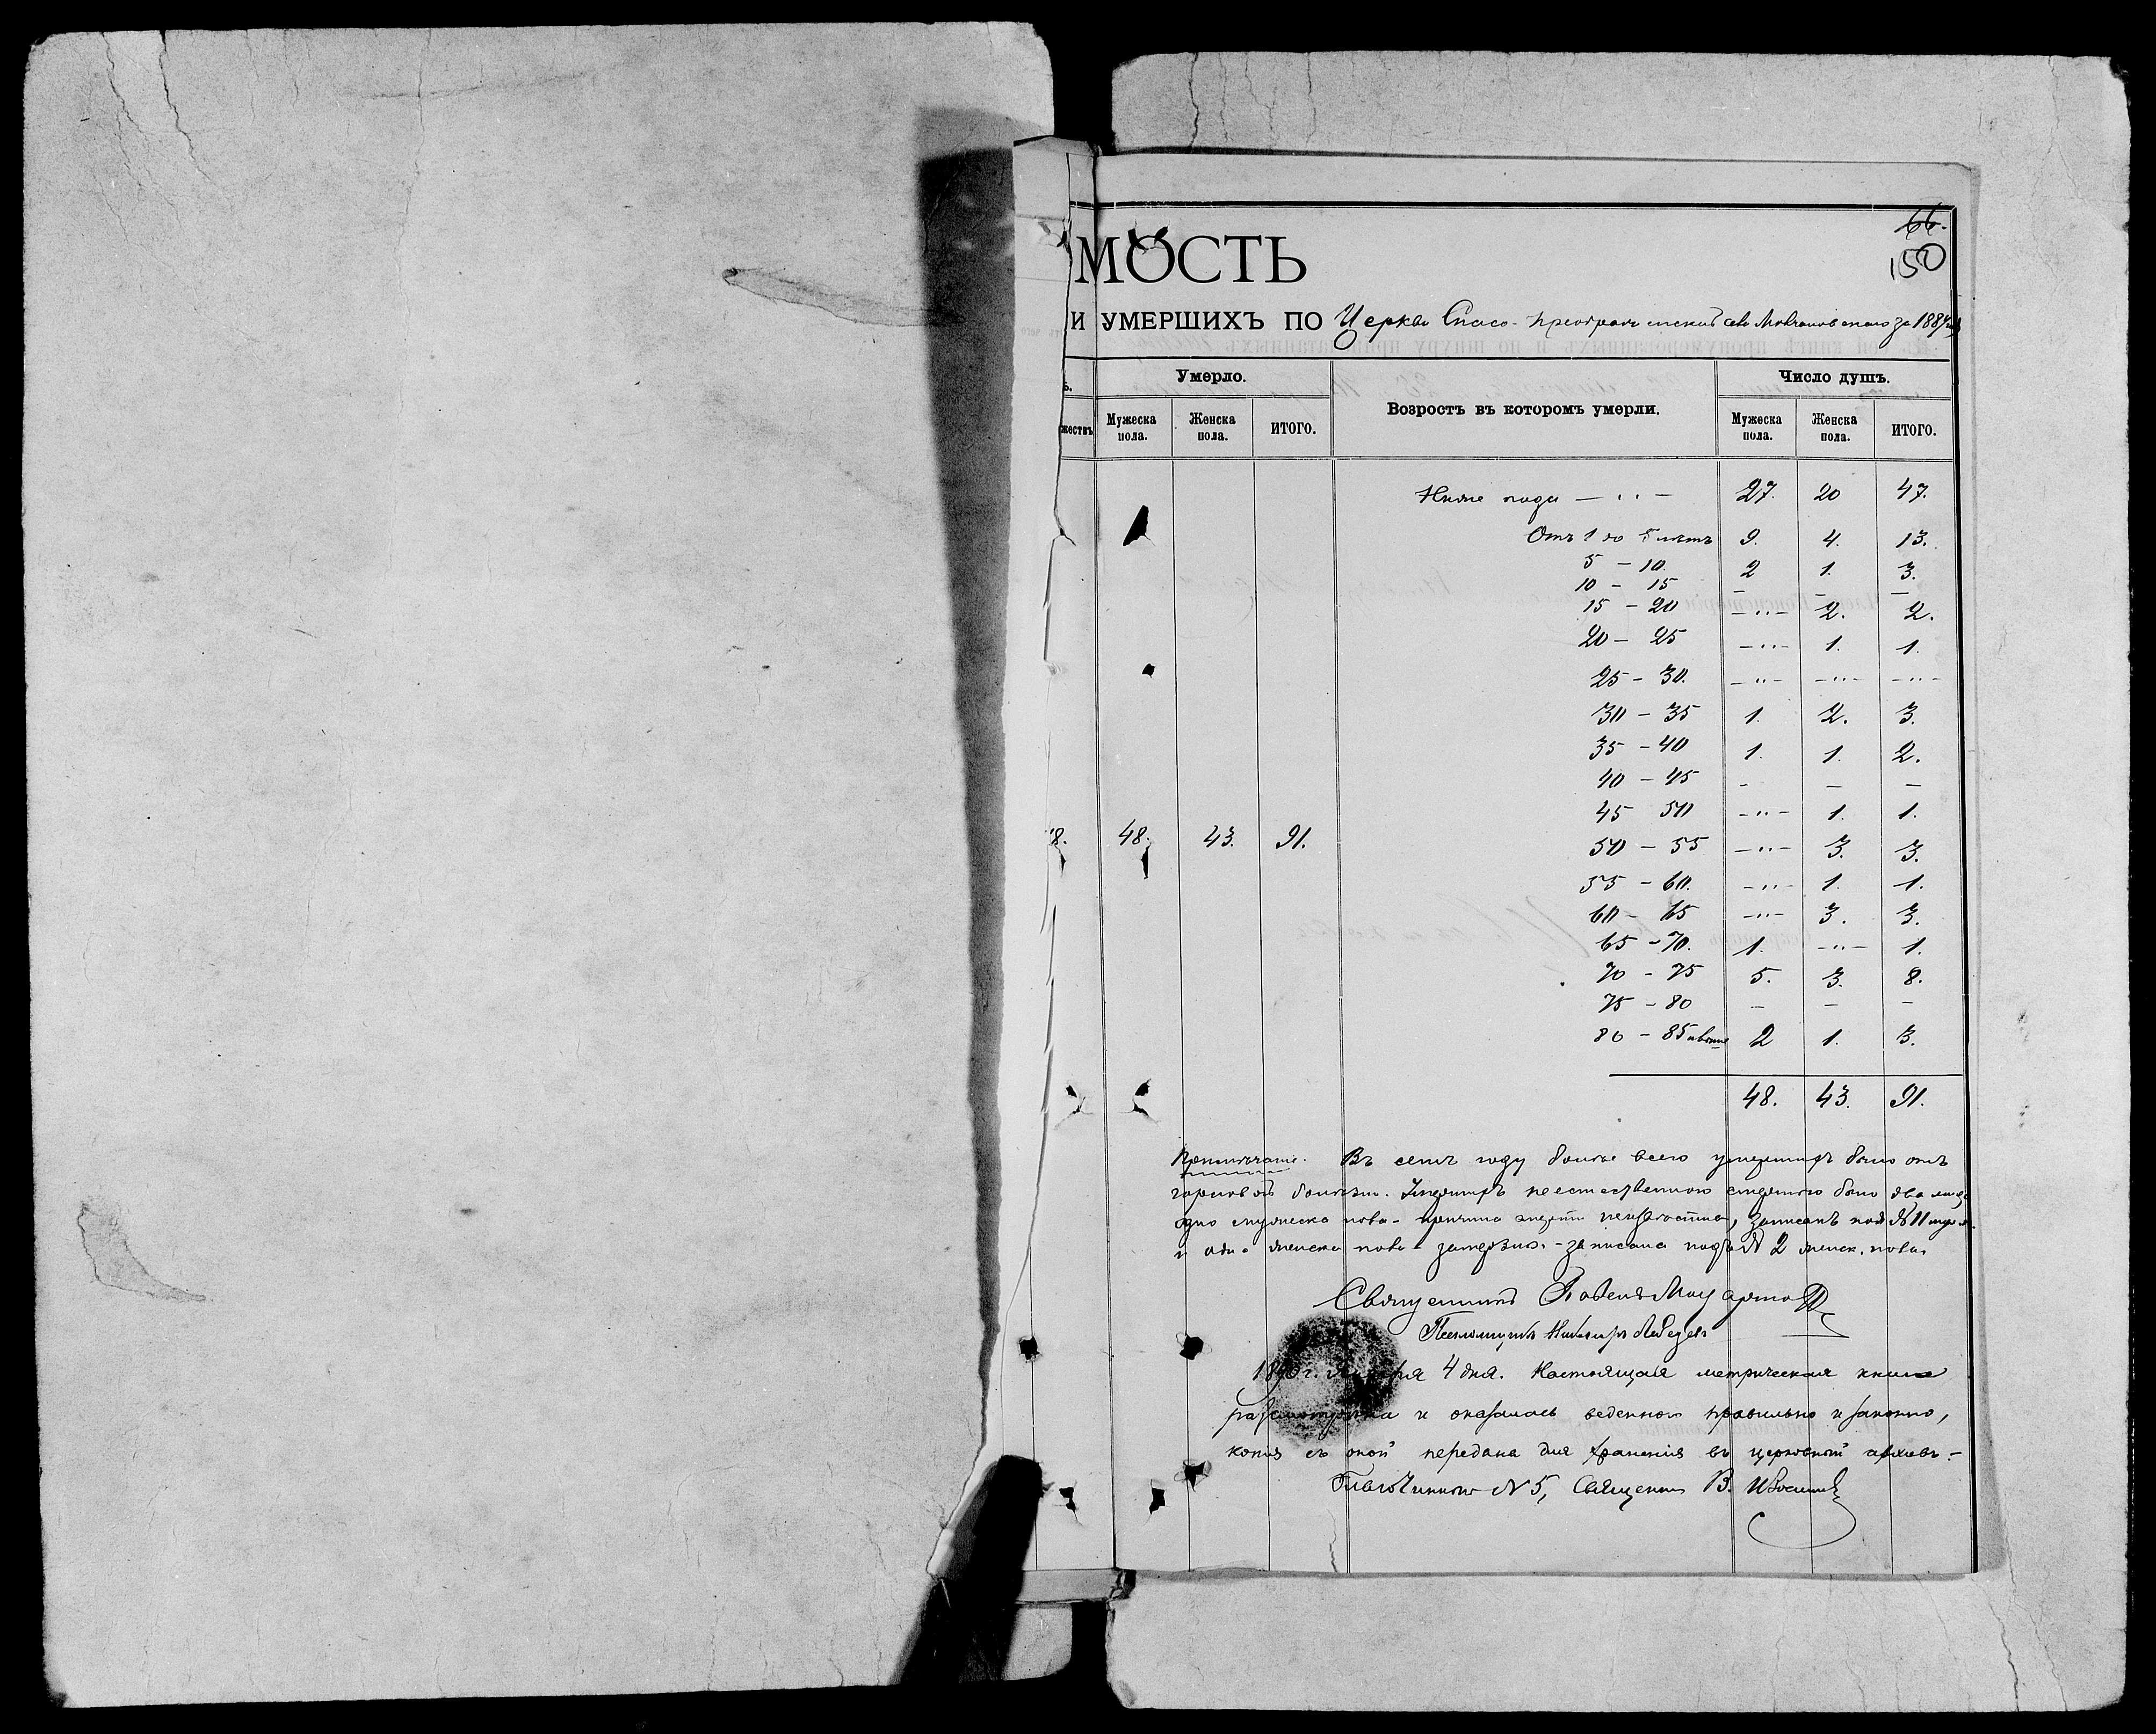 66.
150
МОСТЬ
И УМЕРШИХЪ ПО Церкви Спасо-преображенской села за 188
Ь. Умерло. Возростъ въ которомъ умерли. Число душъ.
жествъ Мужеска пола. Женска пола. ИТОГО. Мужеска пола. Женска пола. ИТОГО.
Ниже года — ·· — 27. 20 47.
Отъ 1 до 5 летъ 9. 4. 13.
5 – 10. 2 1. 3.
10 – 15 – – –
15 – 20 –··– 2. 2.
20 – 25 –··– 1. 1.
25 – 30. –··– –··– –··–
30 – 35 1. 2. 3.
35 – 40 1. 1. 2.
40 – 45 – – –
45 50 –··– 1. 1.
8. 48. 43. 91. 50 – 55 –··– 3. 3.
55 – 60. –··– 1. 1.
60 – 65 –··– 3. 3.
65 – 70. 1. –··– 1.
70 – 75 5. 3. 8.
75 – 80 – – –
80 – 85 и выше 2 1. 3.
48. 43. 91.
Примѣчаніе. Въ семъ году болѣе всего умершихъ было отъ
горловой болѣзни. Умершихъ неестественною смертью было два лица
одно мужеска пола - причина смерти неизвѣстна, записанъ подъ № 11
и одна женска пола - - записана подъ № 2 женск. пола.
Священникъ Павелъ
Псаломщикъ Лебедевъ
1890 г. Января 4 дня. Настоящая метрическая книга
разсмотрена и оказалась веденною правильно и законно,
копія съ оной передана для храненія въ церковный архивъ.–
Благочинный № 5, Священник В.